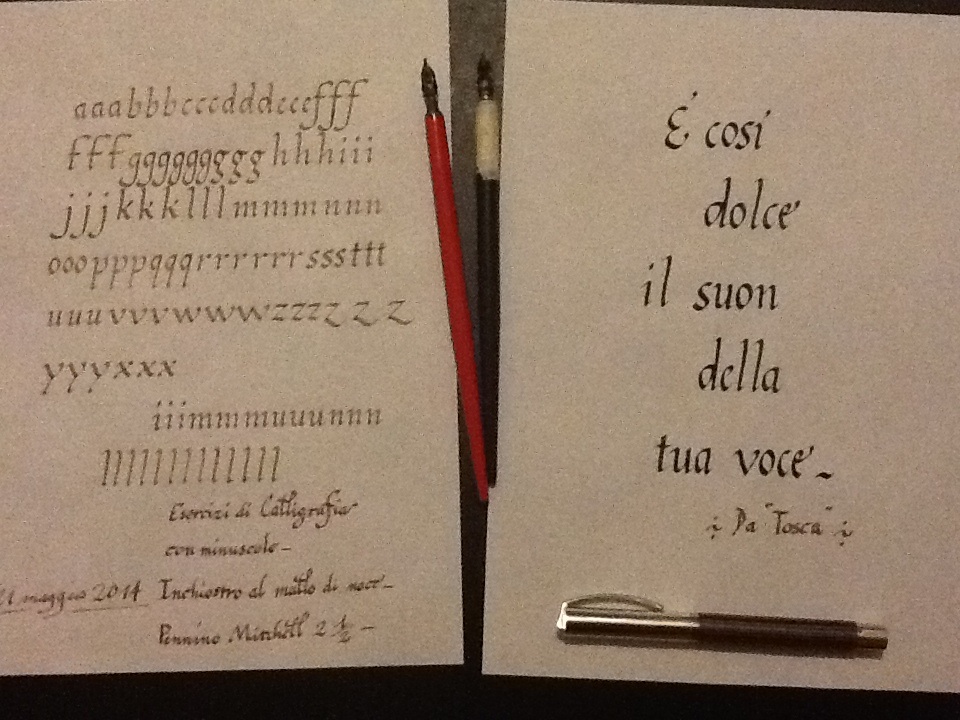 aaabbbcccdddeeefff
fffggggggggghhhiii
jjjkkklllmmmnnn
ooopppqqqrrrrrrssssttt
uuuvvvwwwzzzzzz
yyyxxx
iiimmmuuunnn
llllllllllll
Esercizi di Calligrafia
con minuscole-
maggio 2014 Inchiostro al mallo di noce-
Pennino Mitchell 2 1/2 -
É cosí
dolce
il suon
della
tua voce-
Da "Tosca"